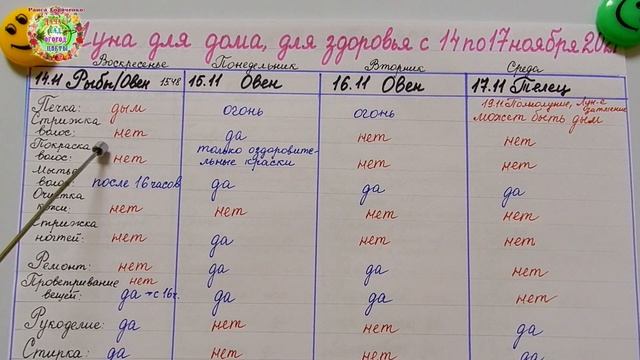 Раиса Горяченко
САД
ОГОРОД
ЦВЕТЫ
Луна для дома, для здоровья с 14 по 17 ноября 202
Воскресенье Понедельник Вторник Среда
14.11 Рыбы/Овен 15 48 15.11 Овен 16.11 Овен 17.11 Телец
Печка: дым огонь огонь 19.11 Полнолуние, Лун-е затмение
может быть дым
Стрижка
волос: нет да нет нет
Покраска
волос: нет только оздоровите-
льные краски нет нет
Мытьё
волос: после 16 часов да да да
Очистка
кожи: нет нет нет нет
Стрижка
ногтей: нет да нет нет
Ремонт: нет да да нет
Проветривание нет
вещей: да - с 16ч. да да нет
Рукоделие: да нет нет да
Стирка: да нет нет да